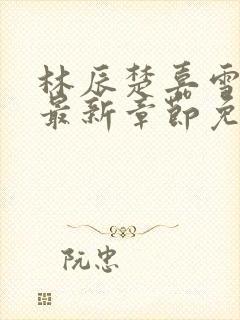 林辰楚嘉雪
最新章节免
阮忠